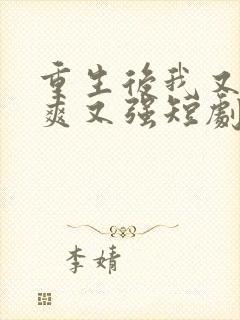 重生後我又
爽又強短劇
李婧